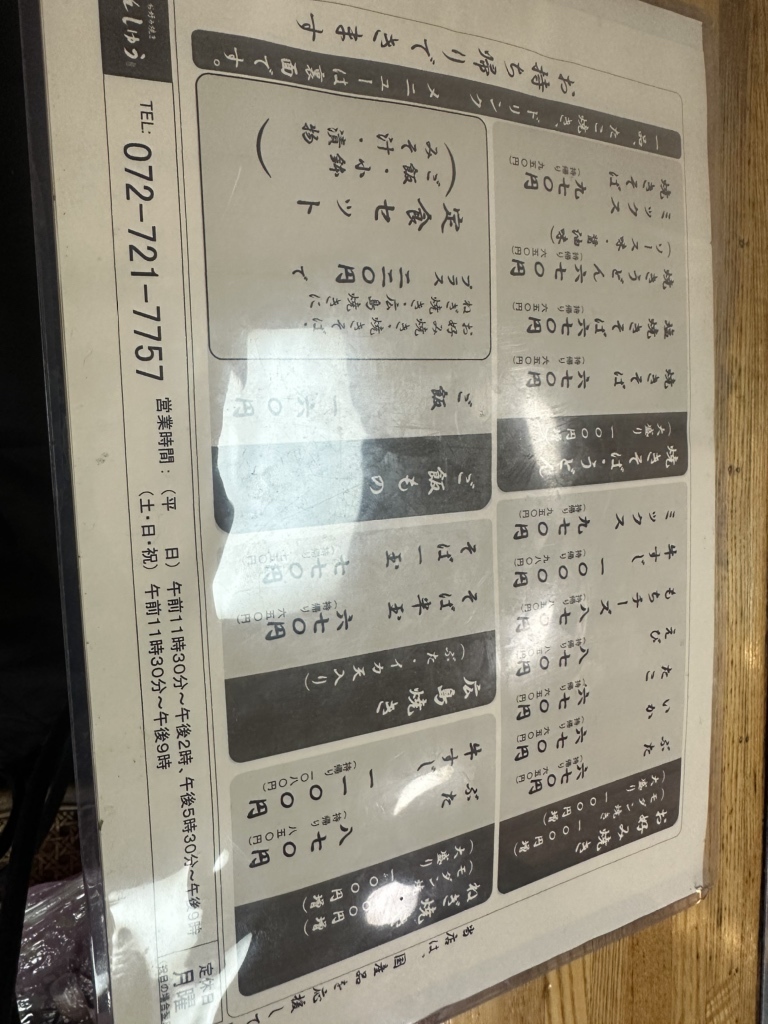 当店は、国産品を応援して
お好み焼き
(モダン焼き 一〇〇円増)
(大盛り 一〇〇円増)
ぶた 六七〇円
(持帰り 六五〇円)
いか 六七〇円
(持帰り 六五〇円)
たこ 六七〇円
(持帰り 六五〇円)
えび 八七〇円
(持帰り 八五〇円)
もちチーズ 八七〇円
(持帰り 八五〇円)
牛すじ 一〇〇〇円
(持帰り 九八〇円)
ミックス 九七〇円
(持帰り 九五〇円)
焼きそば・うどん
(大盛り 一〇〇円増)
焼きそば 六七〇円
(持帰り 六五〇円)
塩焼きそば 六七〇円
(持帰り 六五〇円)
焼きうどん 六七〇円
(持帰り 六五〇円)
(ソース味・醤油味)
ミックス
焼きそば 九七〇円
(持帰り 九五〇円)
ねぎ焼
(モダン
(大盛り 一〇〇円増)
ぶた 八七〇円
(持帰り 八五〇円)
牛すじ 一一〇〇円
(持帰り 一〇八〇円)
広島焼き
(ぶた・イカ天入り)
そば半玉 六七〇円
(持帰り 六五〇円)
そば一玉 七七〇円
(持帰り 七五〇円)
ご飯もの
ご飯 一六〇円
お好み焼き・焼そば・
ねぎ焼き・広島焼きに
プラス 円で
定食セット
(ご飯・小鉢
みそ汁・漬物)
一品、たこ焼き、ドリンク メニューは裏面です。
お持ち帰りできます
お好み焼き
しゅう
TEL: 072-721-7757
営業時間:(平 日)午前11時30分～午後2時、午後5時30分～午後9時
(土・日・祝)午前11時30分～午後9時
定休日
月曜